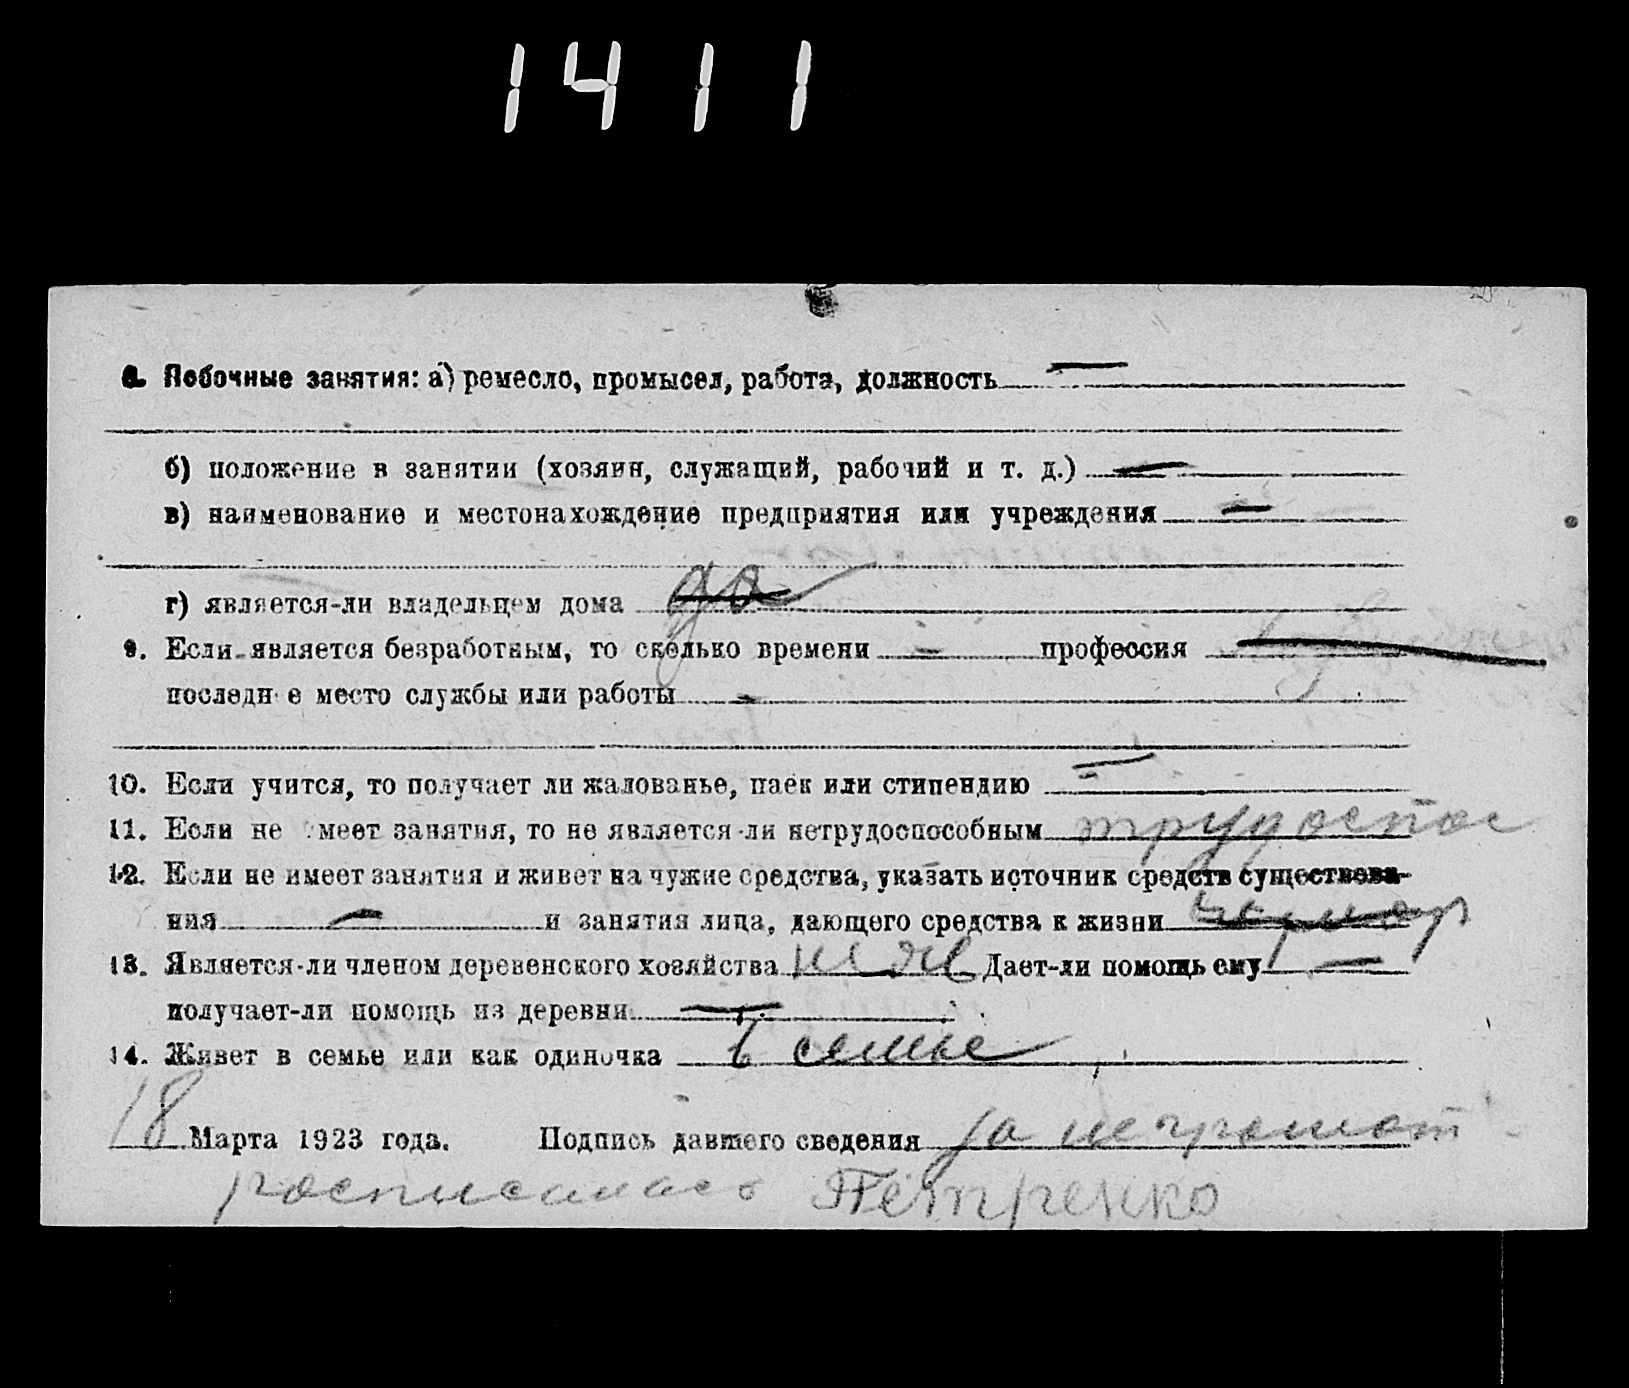 1411
8. Побочные занятия: а) ремесло, промысел, работа, должность —
б) положение в занятии (хозяин, служащий, рабочий и т. д.) —
в) наименование и местонахождение предприятия или учреждения —
г) является-ли владельцем дома да
9. Если является безработным, то сколько времени — профессия —
последнее место службы или работы -
10. Если учится, то получает ли жалованье, паек или стипендию —
11. Если не имеет занятия, то не является-ли нетрудоспособным трудоспос
12. Если не имеет занятия и живет на чужие средства, указать источник средств существова-
ния — и занятия лица, дающего средства к жизни
13. Является-ли членом деревенского хозяйства не яв Дает-ли помощь ему —
получает-ли помощь из деревни —
14. Живет в семье или как одиночка в семье
18 Марта 1923 года. Подпись давшего сведения за неграмот
росписалась Петренко